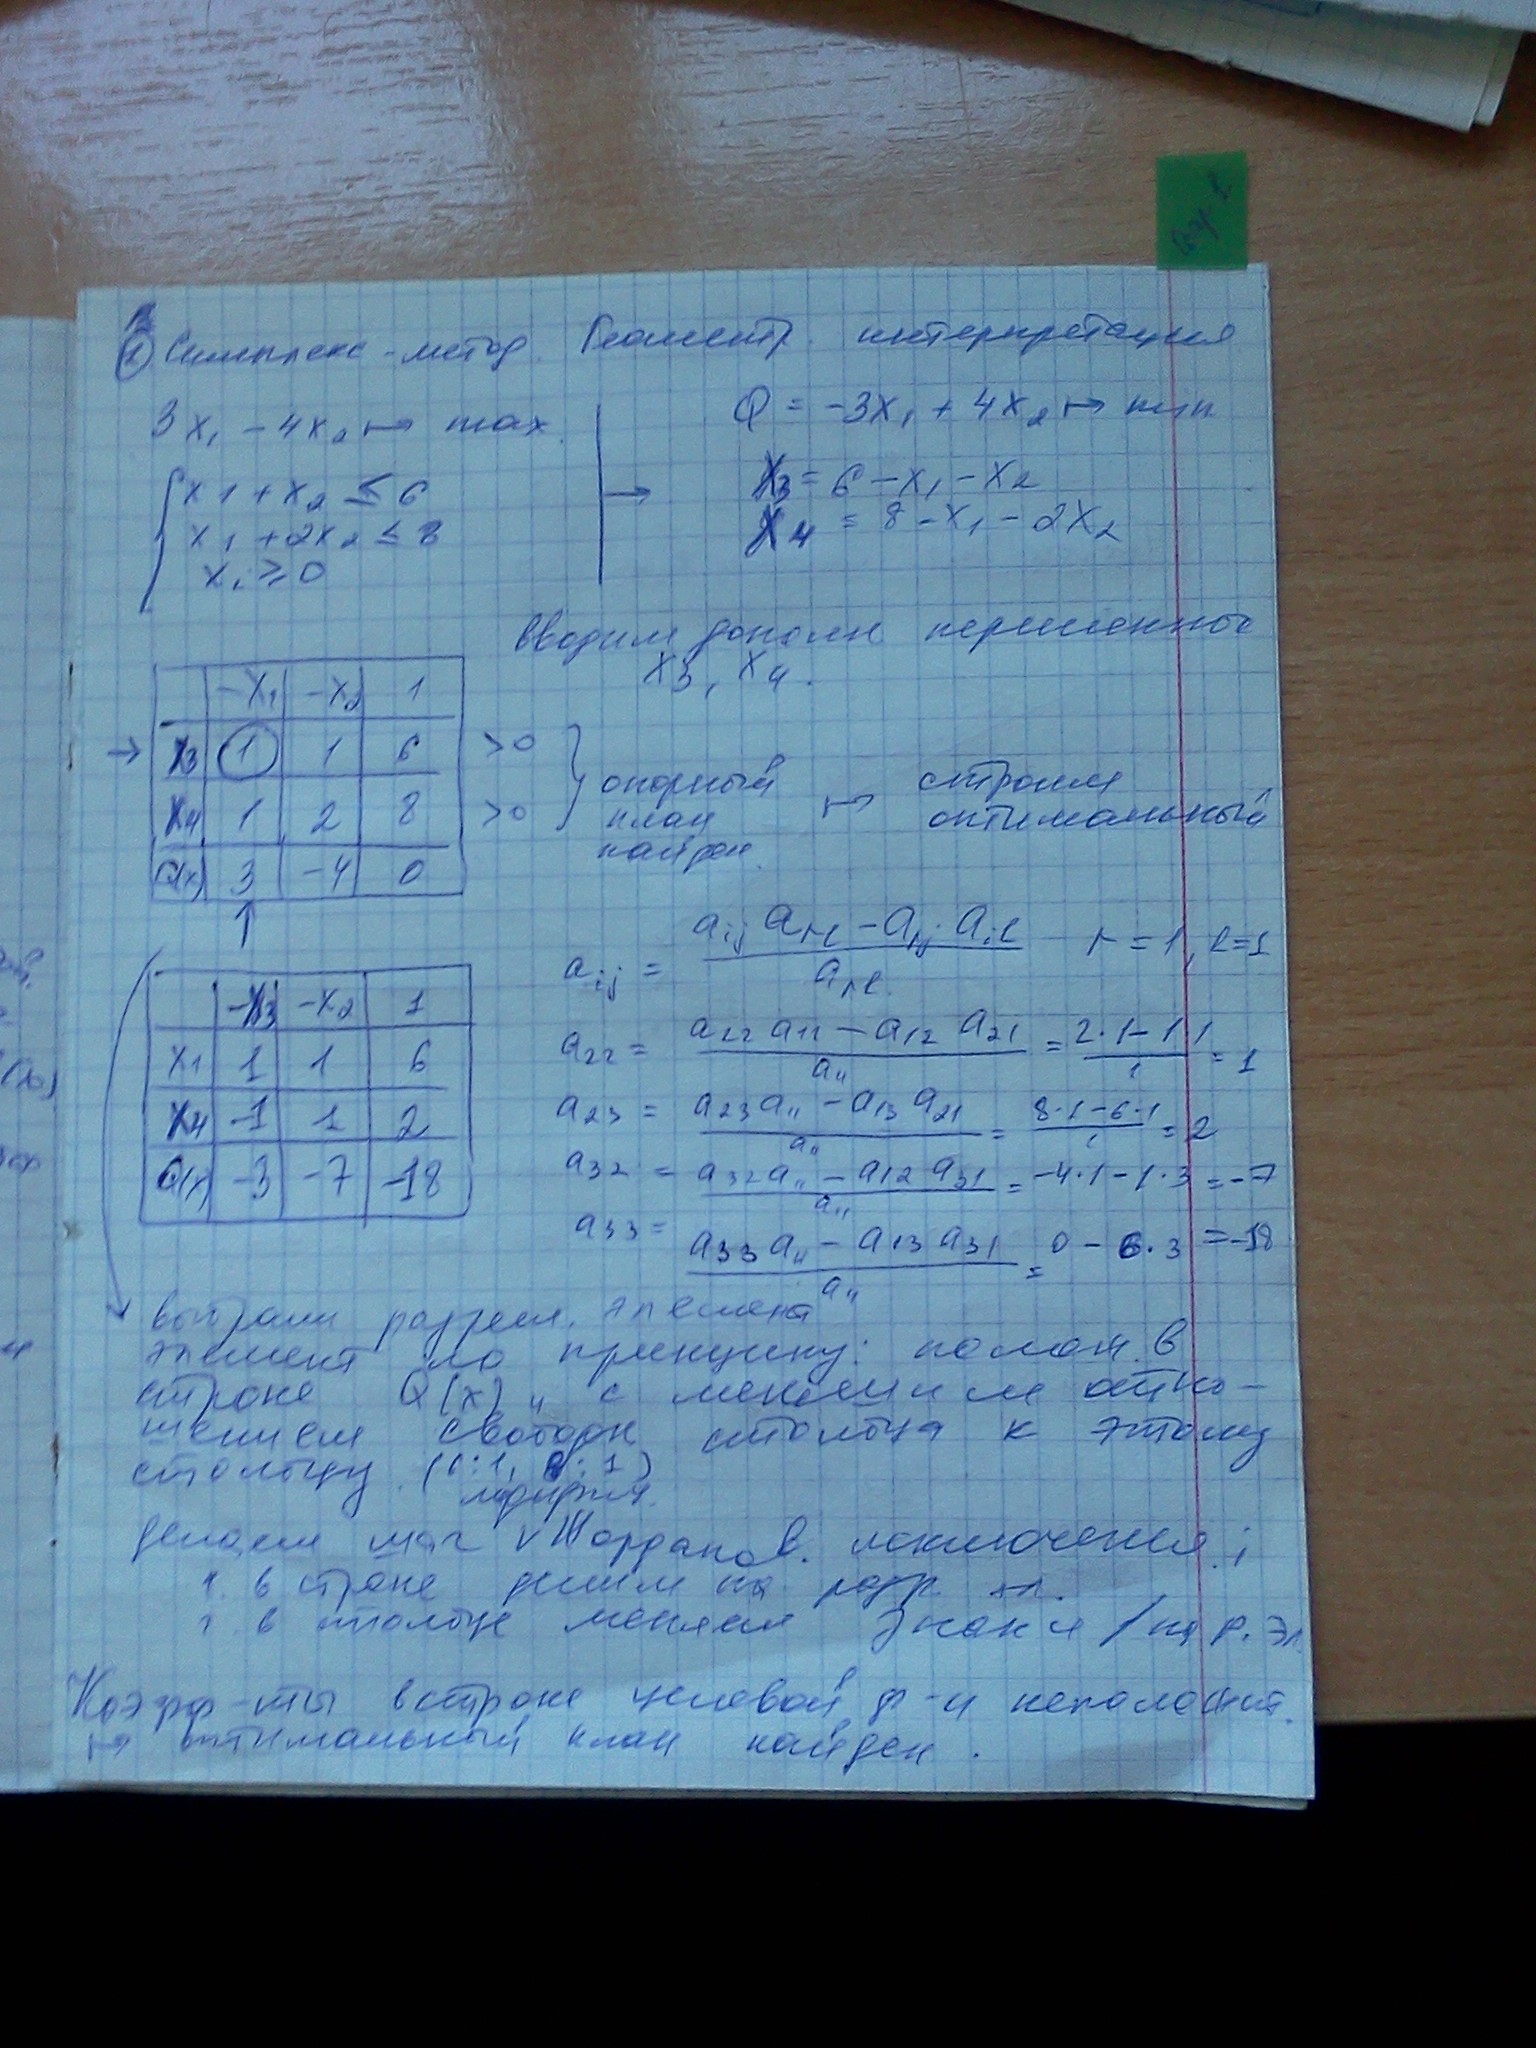 ② Симплекс-метод. Геометр. интерпретация
3x₁ - 4x₂ ↦ max.
{ x1 + x₂ ≤ 6
x₁ + 2x₂ ≤ 8
xᵢ ≥ 0
→
Q = -3x₁ + 4x₂ ↦ min
X₃ = 6 - x₁ - x₂
X₄ = 8 - x₁ - 2x₂
вводим дополн переменные
x₃, x₄.
-x₁ -x₂ 1
→ x₃ 1 1 6 >0
x₄ 1 2 8 >0
Q(x) 3 -4 0
↑
} опорный
план
найден.
↦ строим
оптимальный
aᵢⱼ = (aᵢⱼ aᵣₑ - aᵣⱼ · aᵢₑ) / aᵣₑ r = 1, l = 1
a₂₂ = (a₂₂ a₁₁ - a₁₂ a₂₁) / a₁₁ = (2·1 - 1·1) / 1 = 1
a₂₃ = (a₂₃ a₁₁ - a₁₃ a₂₁) / a₁₁ = (8·1 - 6·1) / 1 = 2
a₃₂ = (a₃₂ a₁₁ - a₁₂ a₃₁) / a₁₁ = -4·1 - 1·3 = -7
a₃₃ = (a₃₃ a₁₁ - a₁₃ a₃₁) / a₁₁ = 0 - 6·3 = -18
-x₃ -x₂ 1
x₁ 1 1 6
x₄ -1 1 2
Q(x) -3 -7 -18
выбрали разреш. элемент
элемент по принципу: полож. в
строке Q(x) и с меньшим отно-
шением свободн столбца к этому
столбцу. (6:1, 8:1)
модифиц.
делаем шаг v Жорданов. исключения:
1. в строке делим на разр эл.
2 в столбце меняем знаки / на р. эл.
Коэфф-ты в строке целевой ф-и неположит.
↦ оптимальный план найден.